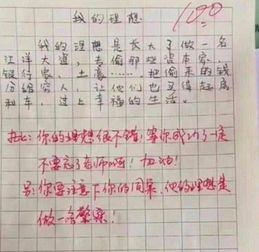 我的理想
100
我的理想是长大了做一名
江洋大盗，专偷那些资本家、
银行家、土豪……把偷来的钱
分给穷人，让他们也买得起房
和车，过上幸福的生活。
批：你的理想很不错，等你成功了一定
不要忘了老师啊！加油！
另，你要注意下你的同桌，他的理想是
做一名警察！